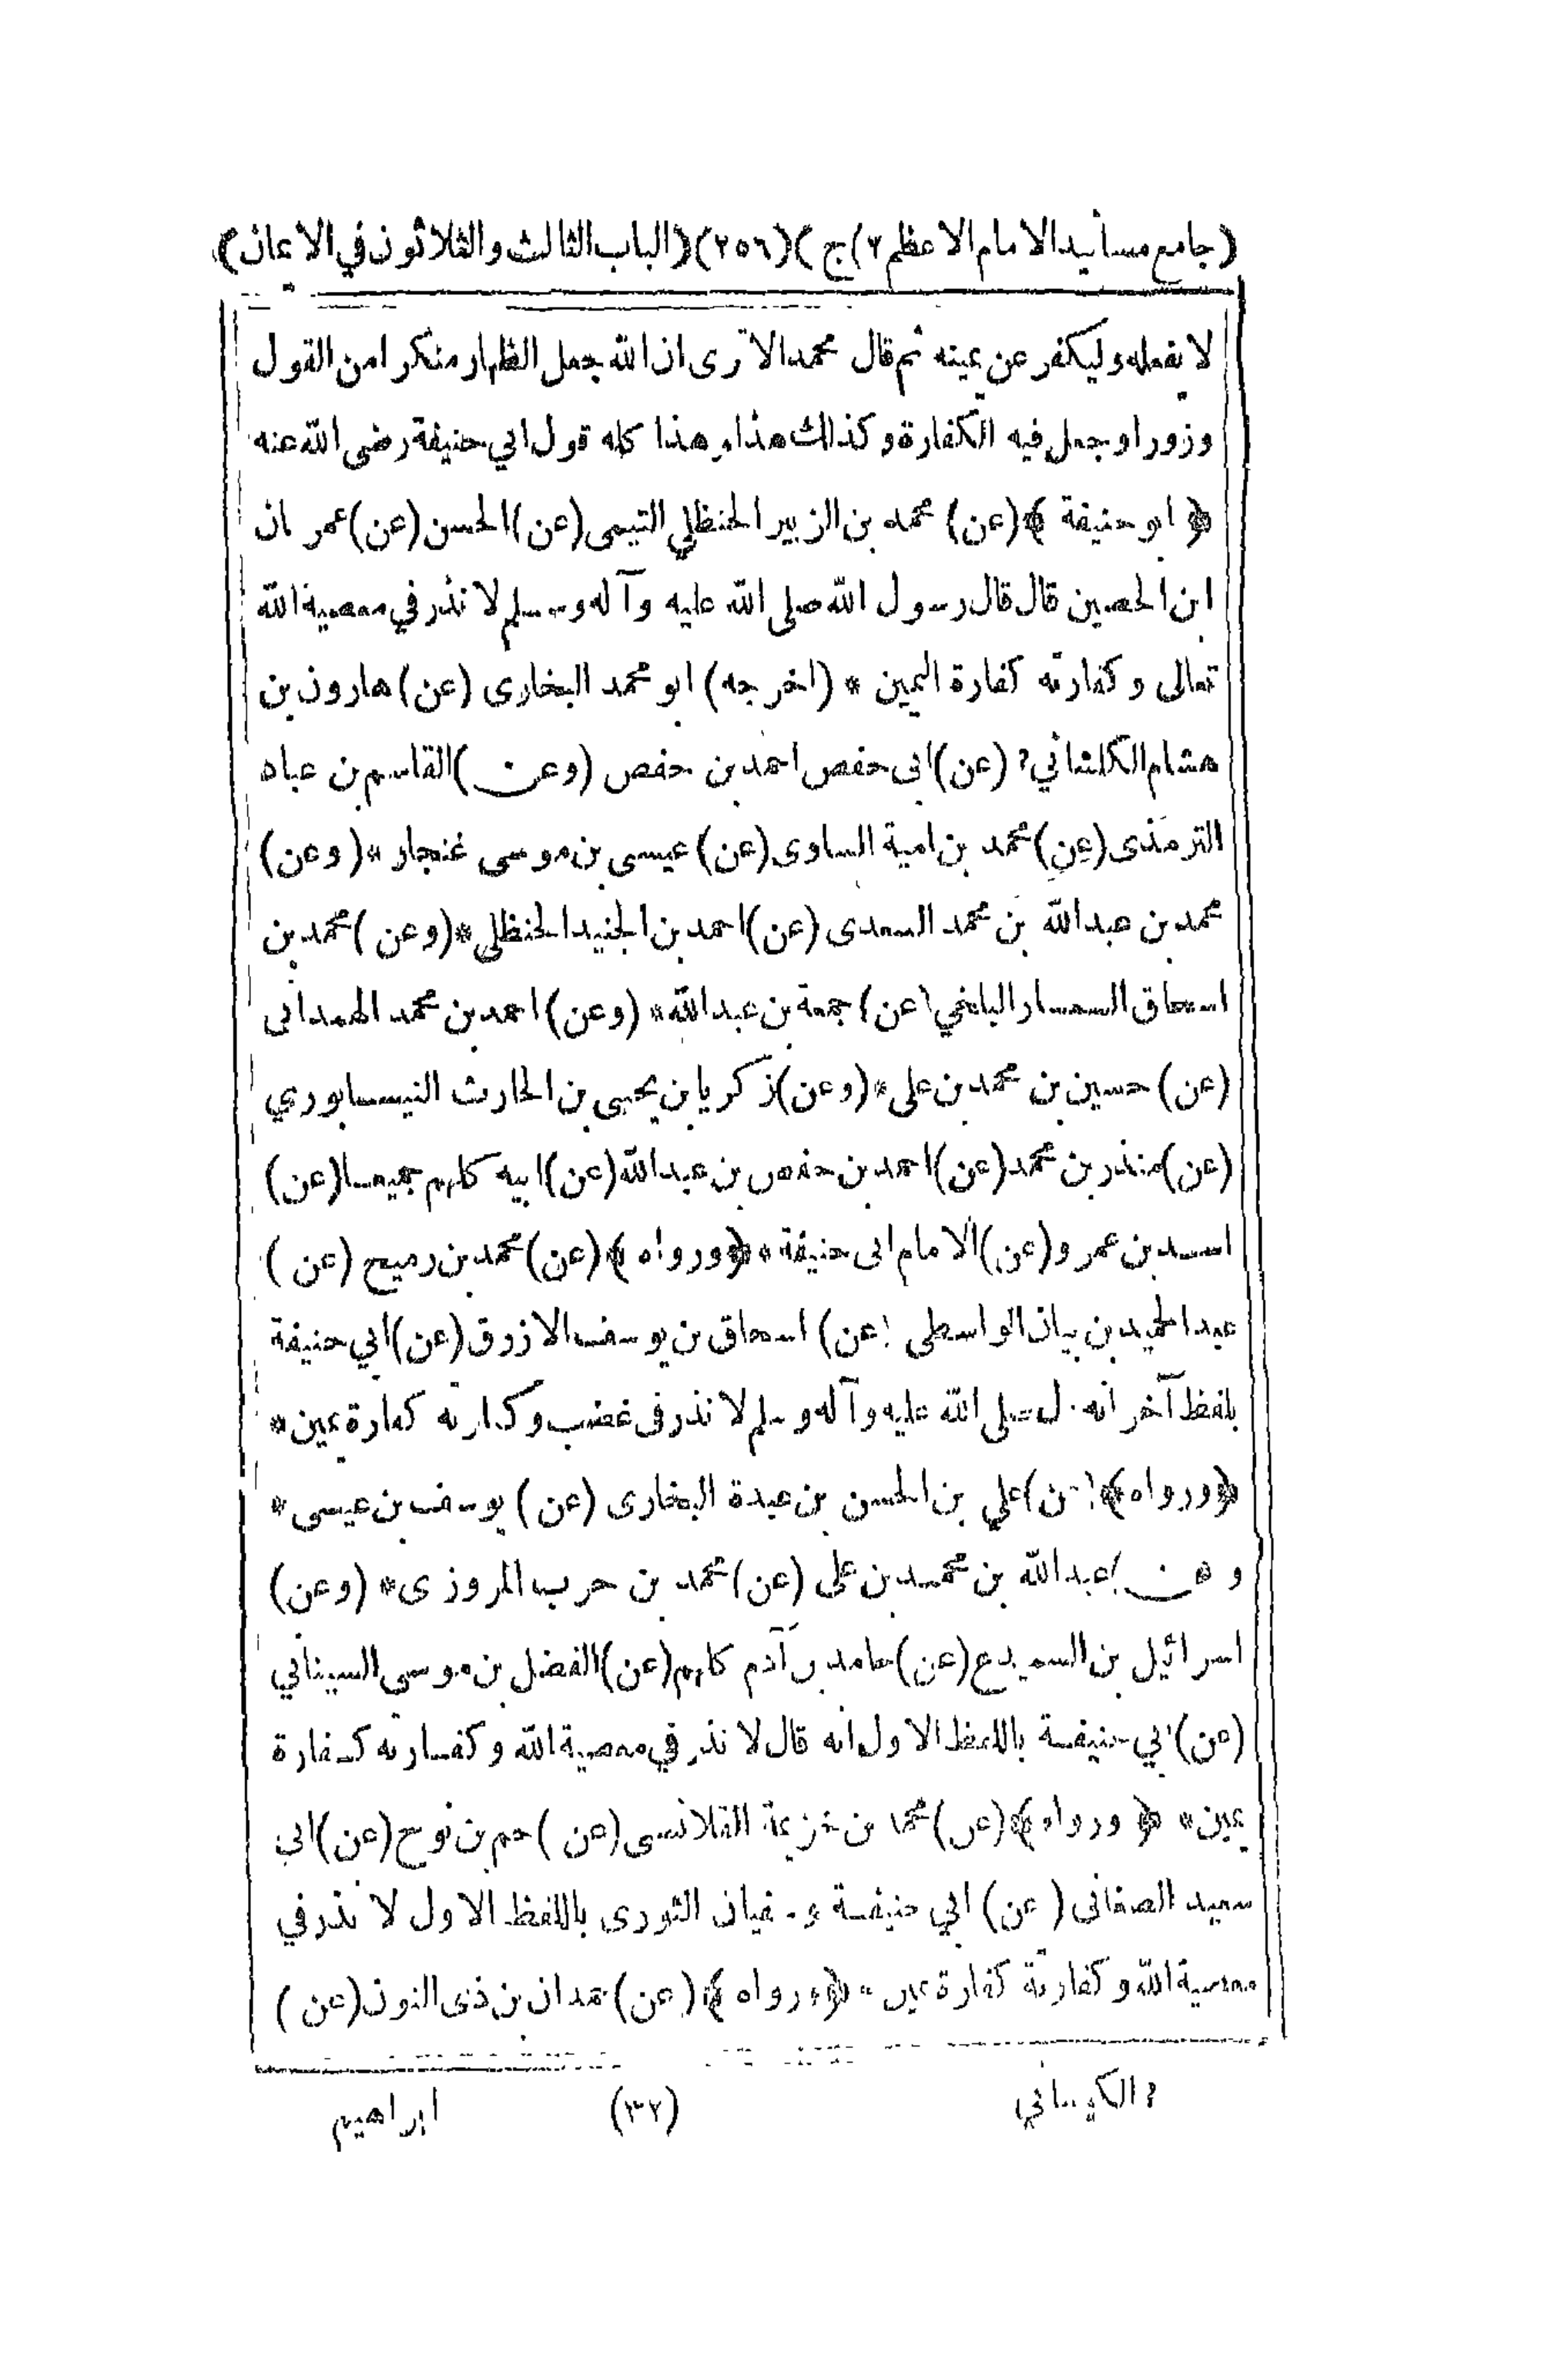 (جامع مسانيد الامام الاعظم ٢) ج ) (٢٥٦) (الباب الثالث والثلاثون في الايمان)
لا يفعله وليكفر عن يمينه ثم قال محمد الا ترى ان الله جعل الظهار منكرا من القول
وزورا وجعل فيه الكفارة وكذلك هذا وهذا كله قول ابي حنيفة رضى الله عنه
﴿ ابو حنيفة ﴾ (عن) محمد بن الزبير الحنظلي التيمى (عن) الحسن (عن) عمران
ابن الحصين قال قال رسول الله صلى الله عليه وآله وسلم لا نذر في معصية الله
تعالى وكفارته كفارة اليمين * (اخرجه) ابو محمد البخارى (عن) هارون بن
هشام الكلشاني? (عن) ابى حفص احمد بن حفص (وعن) القاسم بن عباد
الترمذى (عن) محمد بن امية الساوى (عن) عيسى بن موسى غنجار * (وعن)
محمد بن عبد الله بن محمد السعدى (عن) احمد بن الجنيد الحنظلى * (وعن) محمد بن
اسحاق السمسار البلخي (عن) جمعة بن عبد الله * (وعن) احمد بن محمد الهمدانى
(عن) حسين بن محمد بن على * (وعن) زكريا بن يحيى بن الحارث النيسابوري
(عن) منذر بن محمد (عن) احمد بن حفص بن عبد الله (عن) ابيه كلهم جميعا (عن)
اسد بن عمرو (عن) الامام ابى حنيفة * ﴿ورواه﴾ (عن) محمد بن رميح (عن)
عبد الحميد بن بيان الواسطى (عن) اسحاق بن يوسف الازرق (عن) ابي حنيفة
بلفظ آخر انه قال صلى الله عليه وآله وسلم لا نذر فى غضب وكفارته كفارة يمين *
﴿ورواه﴾ (عن) علي بن الحسن بن عبدة البخارى (عن) يوسف بن عيسى *
و (عن) عبد الله بن محمد بن على (عن) محمد بن حرب المروزى * (وعن)
اسرائيل بن السميدع (عن) حامد بن آدم كلهم (عن) الفضل بن موسى السيناني
(عن) ابي حنيفة باللفظ الاول انه قال لا نذر في معصية الله وكفارته كفارة
يمين * ﴿ ورواه ﴾ (عن) محمد بن خزيمة القلانسى (عن) حم بن نوح (عن) ابي
سعيد الصغانى (عن) ابي حنيفة وسفيان الثورى باللفظ الاول لا نذر في
معصية الله وكفارته كفارة يمين * ﴿ورواه﴾ (عن) حمدان بن ذى النون (عن)
? (٣٢) ابراهيم